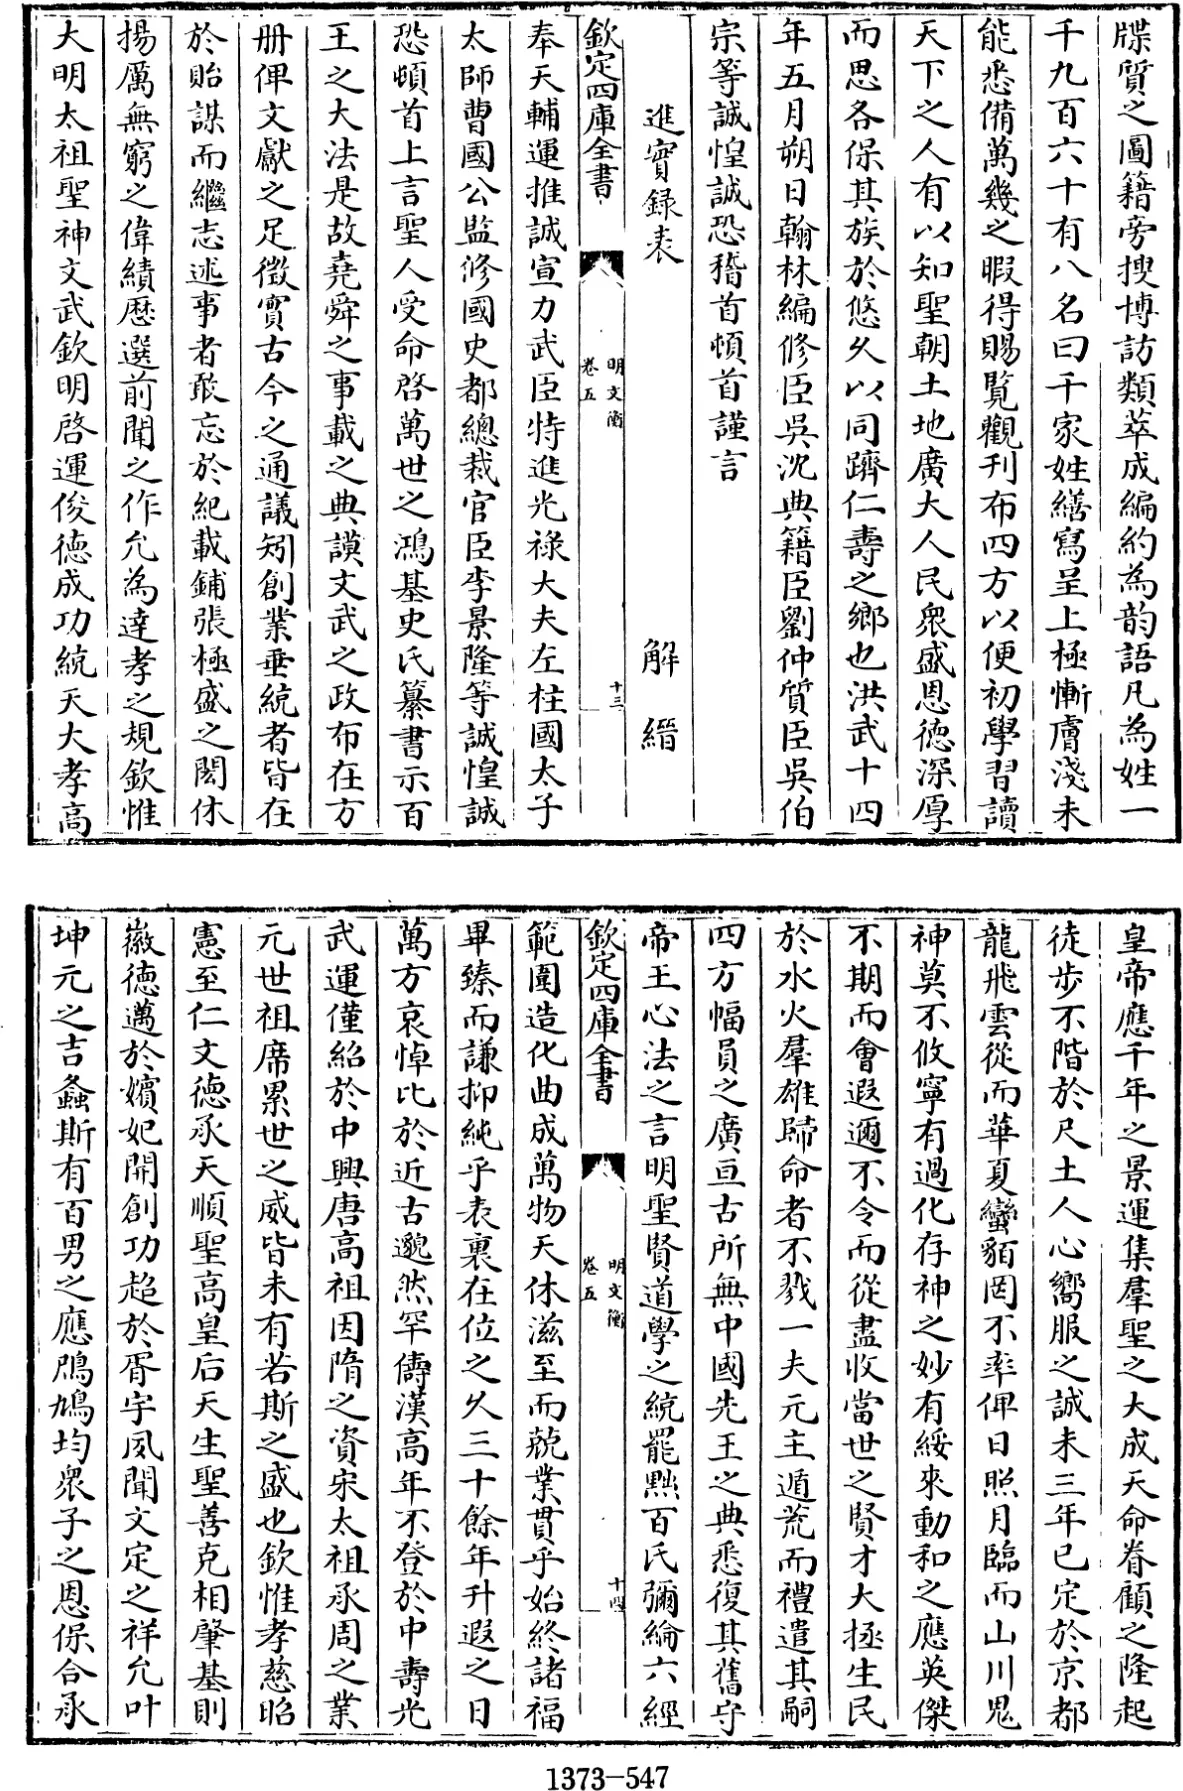 牒質之圖籍旁搜博訪類萃成編約為韵語凡為姓一
千九百六十有八名曰千家姓繕寫呈上極慚膚淺未
能悉備萬幾之暇得賜覧觀刋布四方以便初學習讀
天下之人有以知聖朝土地廣大人民衆盛恩德深厚
而思各保其族於悠久以同躋仁壽之鄉也洪武十四
年五月朔日翰林編修臣吳沈典籍臣劉仲質臣吳伯
宗等誠惶誠恐稽首頓首謹言
進實録表 解縉
欽定四庫全書
明文衡
卷五
十三
奉天輔運推誠宣力武臣特進光禄大夫左柱國太子
太師曹國公監修國史都總裁官臣李景隆等誠惶誠
恐頓首上言聖人受命啓萬世之鴻基史氏纂書示百
王之大法是故堯舜之事載之典謨文武之政布在方
冊俾文獻之足徴實古今之通議矧創業垂統者皆在
於貽謀而繼志述事者敢忘於紀載鋪張極盛之閎休
揚厲無窮之偉績歴選前聞之作允為達孝之規欽惟
大明太祖聖神文武欽明啓運俊德成功統天大孝高
皇帝應千年之景運集羣聖之大成天命眷顧之隆起
徒步不階於尺土人心嚮服之誠未三年已定於京都
龍飛雲從而華夏蠻貊罔不率俾日照月臨而山川鬼
神莫不攸寧有過化存神之妙有綏來動和之應英傑
不期而會遐邇不令而從盡收當世之賢才大拯生民
於水火羣雄歸命者不戮一夫元主遁荒而禮遣其嗣
四方幅員之廣亘古所無中國先王之典悉復其舊守
帝王心法之言明聖賢道學之統罷黜百氏彌綸六經
欽定四庫全書
明文衡
卷五
十四
範圍造化曲成萬物天休滋至而兢業貫乎始終諸福
畢臻而謙抑純乎表裏在位之久三十餘年升遐之日
萬方哀悼比於近古邈然罕儔漢高年不登於中壽光
武運僅紹於中興唐高祖因隋之資宋太祖承周之業
元世祖席累世之威皆未有若斯之盛也欽惟孝慈昭
憲至仁文德承天順聖高皇后天生聖善克相肇基則
徽德邁於嬪妃開創功超於胥宇夙聞文定之祥允叶
坤元之吉螽斯有百男之應鳲鳩均衆子之恩保合承
1373-547